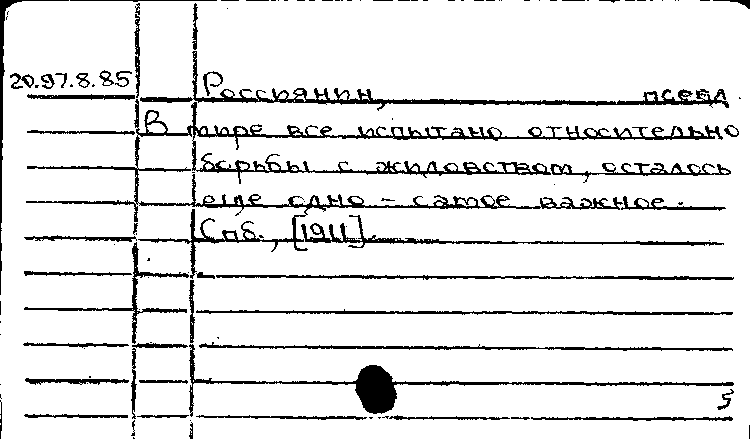 20.97.8.85 Россиянин, псевд
В мире все испытано относительно
борьбы с жидовством, осталось
еще одно - самое важное.
Спб., [1911].
5